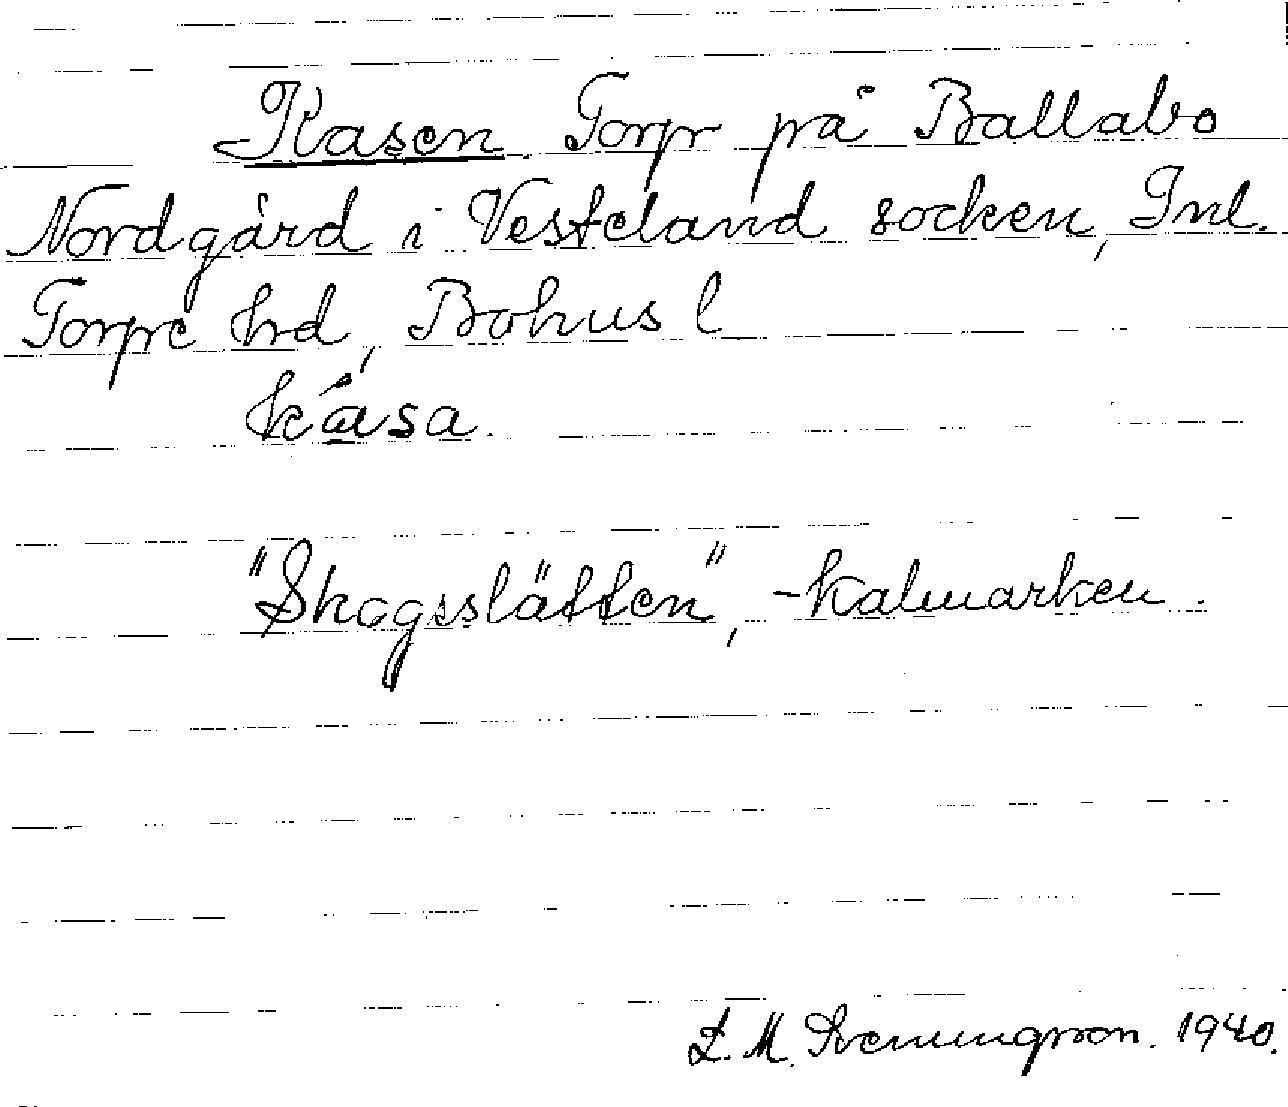 Kasen Torp på Ballabo
Nordgård i Vesteland socken, Inl.
Torpe hrd, Bohus l
kása.
"Skogsslätten", -kalmarken.
L. M. Svenungsson. 1940.